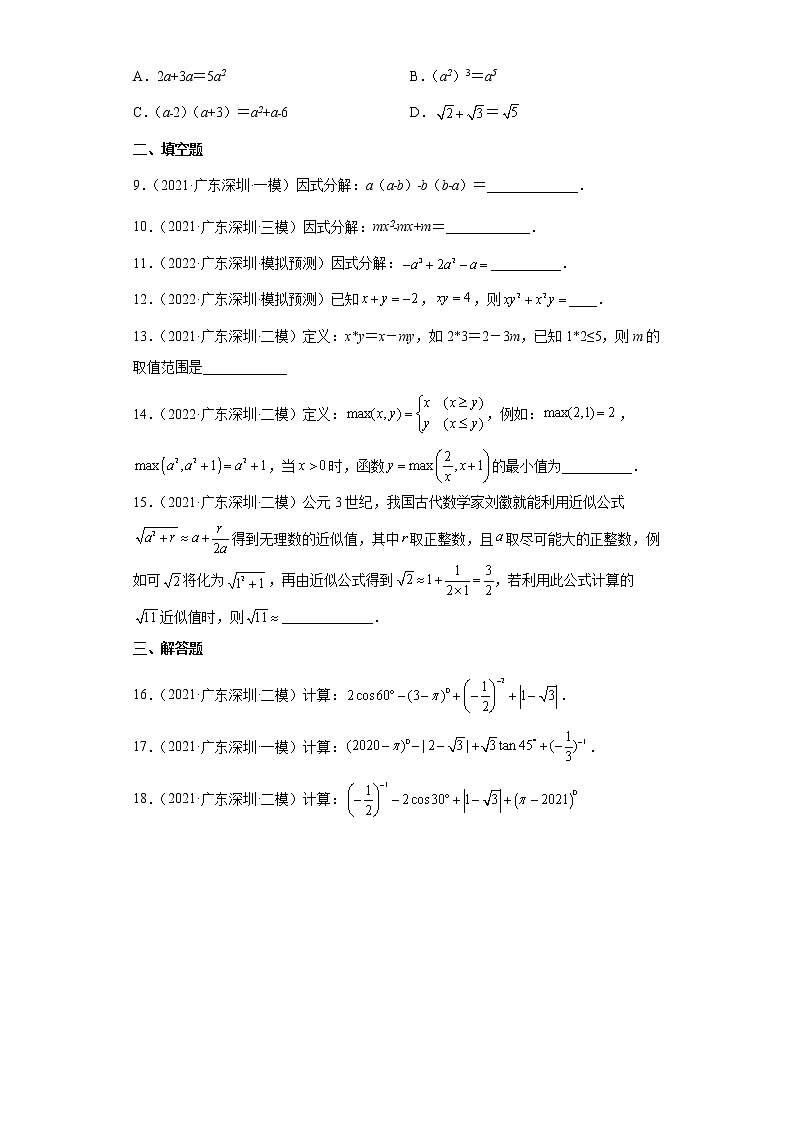 A．2a+3a＝5a² B．（a²）³＝a⁵
C．（a-2）（a+3）＝a²+a-6 D．√2+√3＝√5
二、填空题
9．（2021·广东深圳·一模）因式分解：a（a-b）-b（b-a）＝_____________．
10．（2021·广东深圳·三模）因式分解：mx²-mx+m＝____________．
11．（2022·广东深圳·模拟预测）因式分解：−a³+2a²−a＝__________．
12．（2022·广东深圳·模拟预测）已知x+y=−2，xy=4，则xy²+x²y=____．
13．（2021·广东深圳·二模）定义：x*y＝x－my，如 2*3＝2－3m，已知 1*2≤5，则 m 的
取值范围是____________
14．（2022·广东深圳·二模）定义：max(x,y)={x (x≥y) y (x≤y)，例如：max(2,1)=2，
max(a²,a²+1)=a²+1，当x>0时，函数y=max(2/x,x+1)的最小值为__________．
15．（2021·广东深圳·二模）公元 3 世纪，我国古代数学家刘徽就能利用近似公式
√(a²+r)≈a+r/(2a)得到无理数的近似值，其中r取正整数，且a取尽可能大的正整数，例
如可√2将化为√(1²+1)，再由近似公式得到√2≈1+1/(2×1)=3/2，若利用此公式计算的
√11近似值时，则√11≈_____________．
三、解答题
16．（2021·广东深圳·二模）计算：2cos60°−(3−π)⁰+(−1/2)⁻²+|1−√3|．
17．（2021·广东深圳·一模）计算：(2020−π)⁰−|2−√3|+√3tan45°+(−1/3)⁻¹．
18．（2021·广东深圳·二模）计算：(−1/2)⁻¹−2cos30°+|1−√3|+(π−2021)⁰